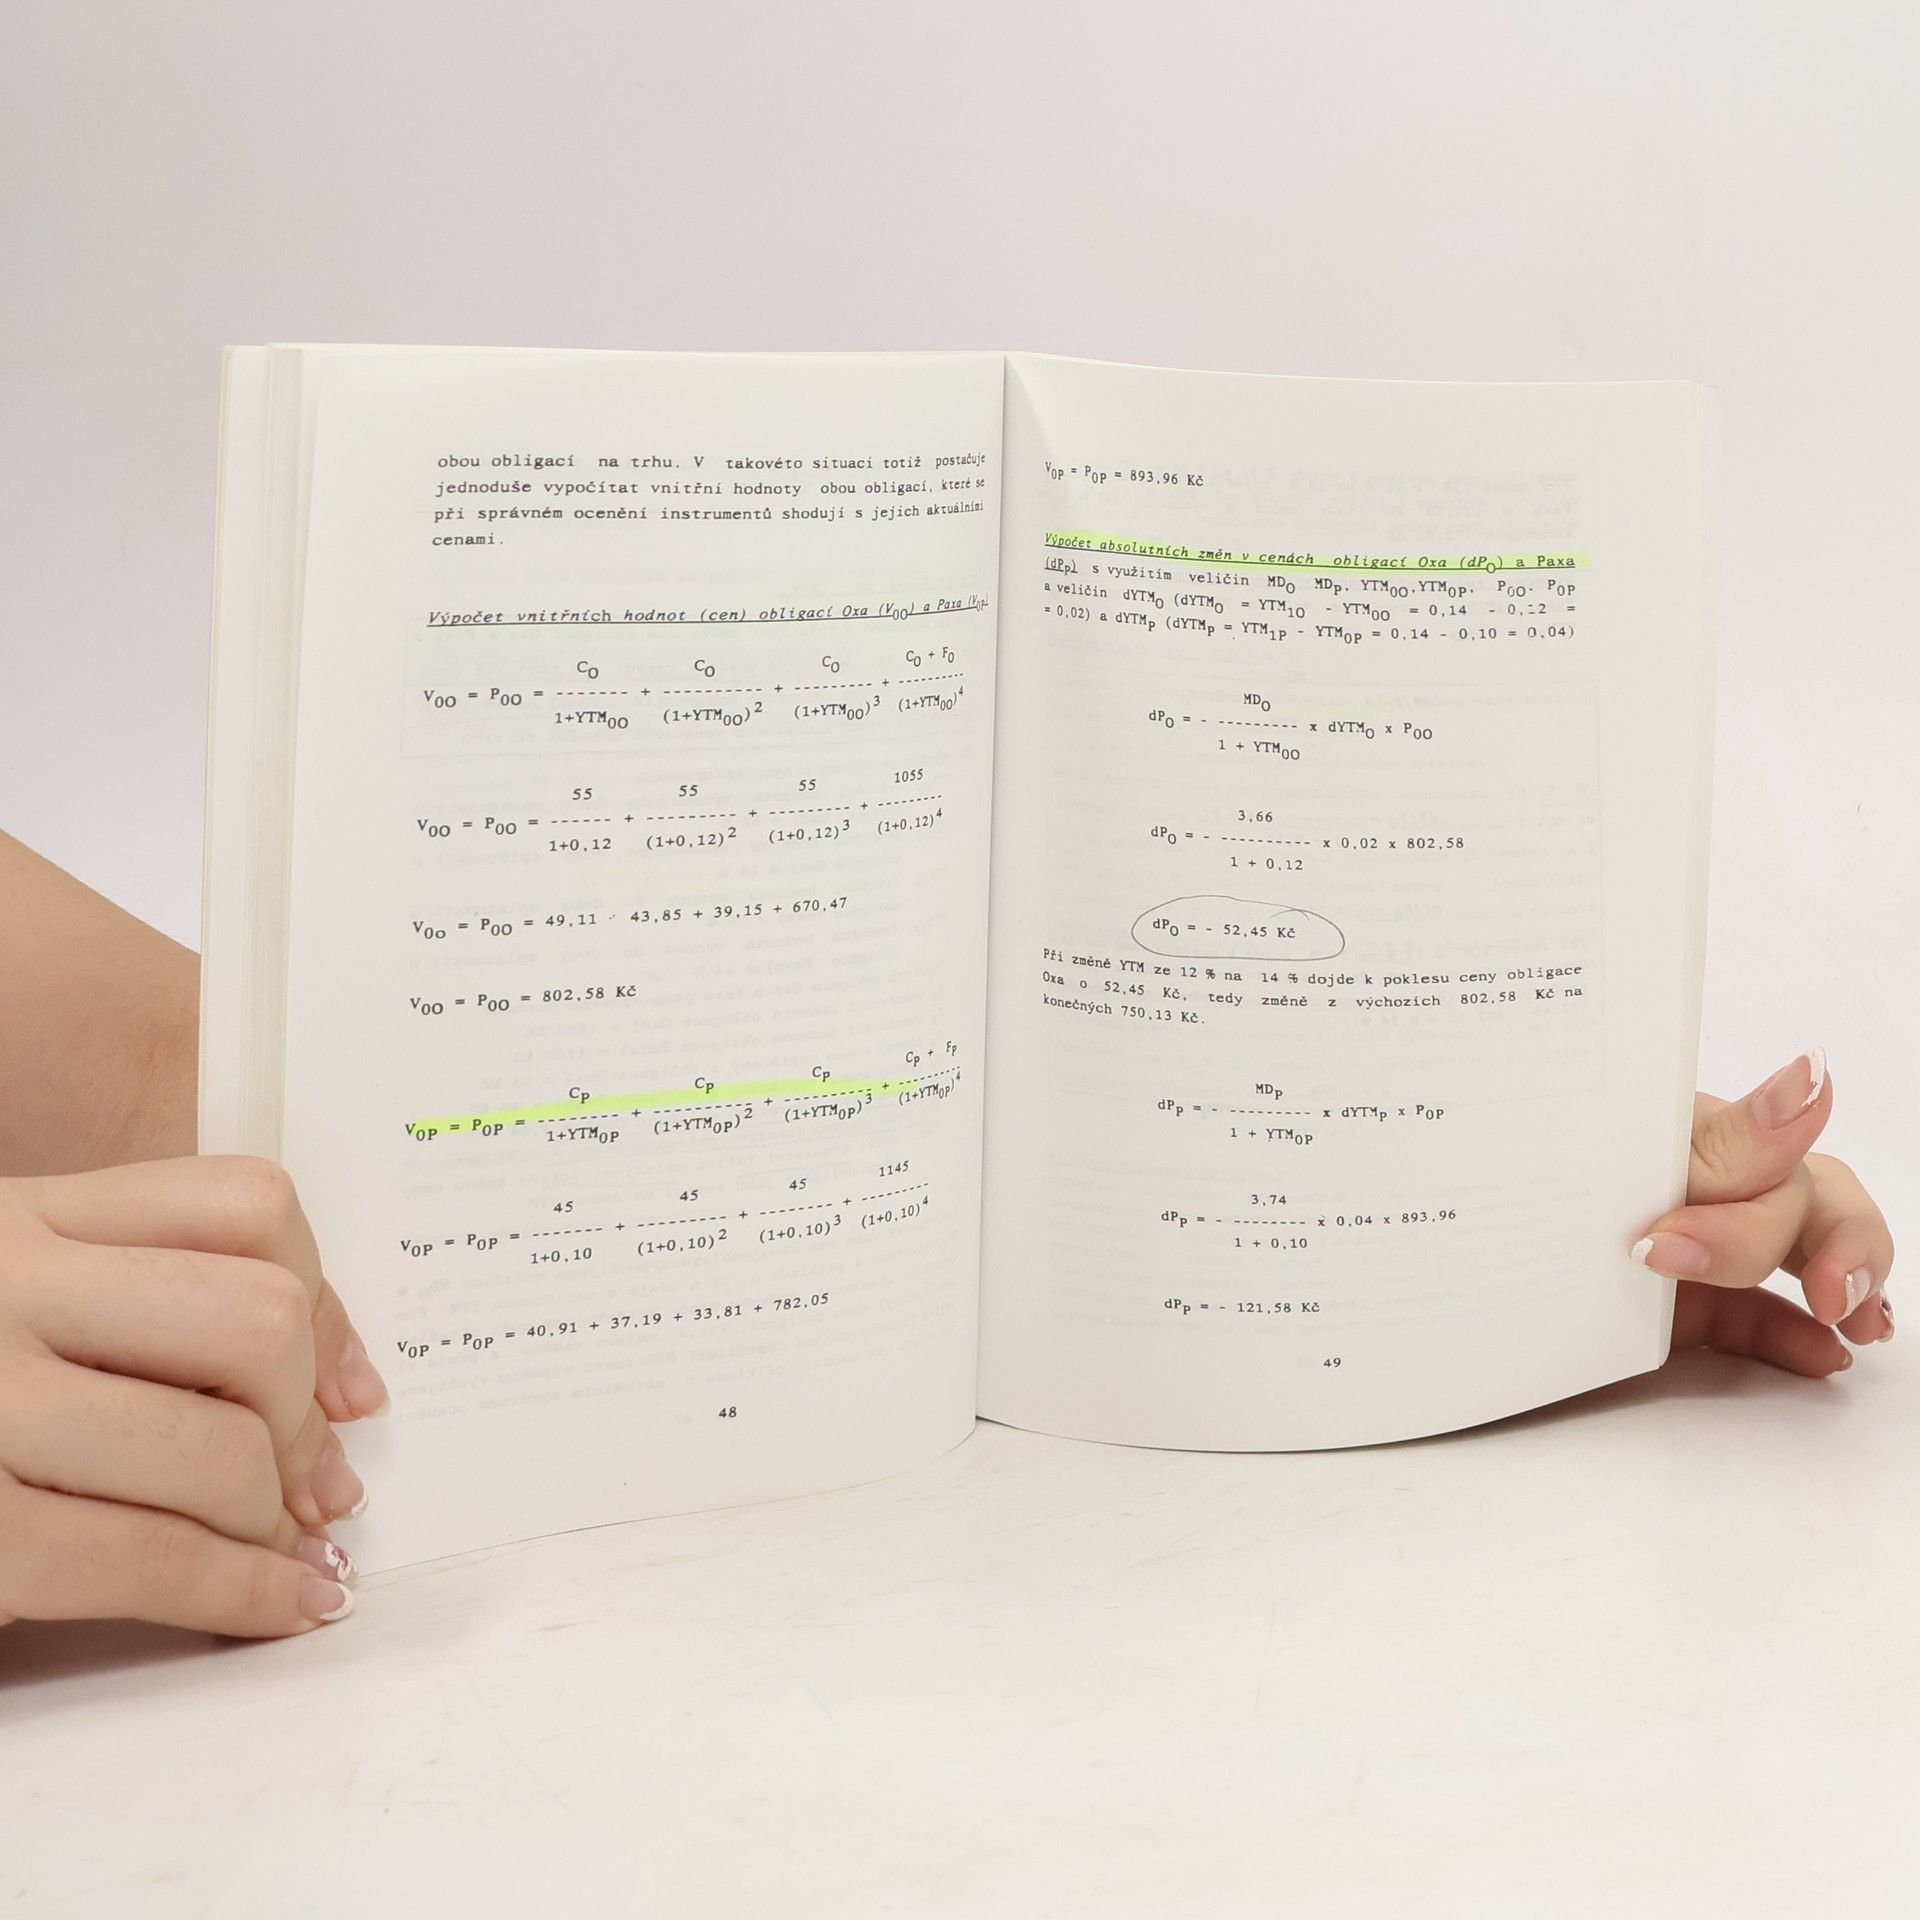 obou obligací na trhu. V takovéto situaci totiž postačuje
jednoduše vypočítat vnitřní hodnoty obou obligací, které se
při správném ocenění instrumentů shodují s jejich aktuálními
cenami.
Výpočet vnitřních hodnot (cen) obligací Oxa (V00) a Paxa (V0P)
CO CO CO CO + FO
V00 = P00 = ------- + ---------- + --------- + ---------
1+YTM00 (1+YTM00)2 (1+YTM00)3 (1+YTM00)4
55 55 55 1055
V00 = P00 = ------ + --------- + --------- + ---------
1+0,12 (1+0,12)2 (1+0,12)3 (1+0,12)4
V0o = P00 = 49,11 - 43,85 + 39,15 + 670,47
V00 = P00 = 802,58 Kč
CP CP CP CP + FP
V0P = P0P = -------- + ---------- + --------- + ---------
1+YTM0P (1+YTM0P)2 (1+YTM0P)3 (1+YTM0P)4
45 45 45 1145
V0P = P0P = ------- + --------- + -------- + ---------
1+0,10 (1+0,10)2 (1+0,10)3 (1+0,10)4
V0P = P0P = 40,91 + 37,19 + 33,81 + 782,05
48
V0P = P0P = 893,96 Kč
Výpočet absolutních změn v cenách obligací Oxa (dPO) a Paxa
(dPP) s využitím veličin MDO MDP, YTM00,YTM0P, P00. P0P
a veličin dYTMO (dYTMO = YTM10 - YTM00 = 0,14 - 0,12 =
= 0,02) a dYTMP (dYTMP = YTM1P - YTM0P = 0,14 - 0,10 = 0,04)
MDO
dPO = - --------- x dYTMO x P00
1 + YTM00
3,66
dPO = - ---------- x 0,02 x 802,58
1 + 0,12
dPO = - 52,45 Kč
Při změně YTM ze 12 % na 14 % dojde k poklesu ceny obligace
Oxa o 52,45 Kč, tedy změně z výchozích 802,58 Kč na
konečných 750,13 Kč.
MDP
dPP = - --------- x dYTMP x P0P
1 + YTM0P
3,74
dPP = - -------- x 0,04 x 893,96
1 + 0,10
dPP = - 121,58 Kč
49